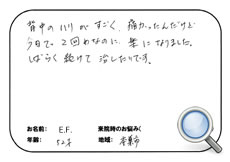 背中のハリがすごく、痛かったんだけど
今日で2回めなのに、楽になりました。
しばらく続けて治したいです。
お名前: E.F. 来院時のお悩み(
年齢: 52才 地域: